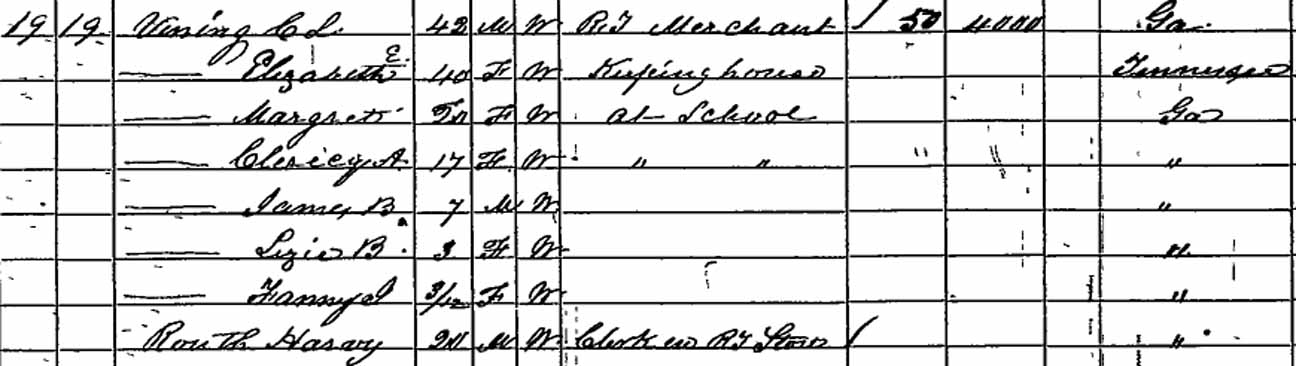 19 19 Vining C L 42 M W RT Merchant / 50 4000 Ga
— Elizabeth E. 40 F W Kepeing house Tennessee
— Margrett F W at School Ga
— A 17 F W " " "
— James B. 7 M W "
— Lizie B 3 F W "
— Fanny I 3/12 F W "
Routh Harvy M W Clerk in RT Store / "